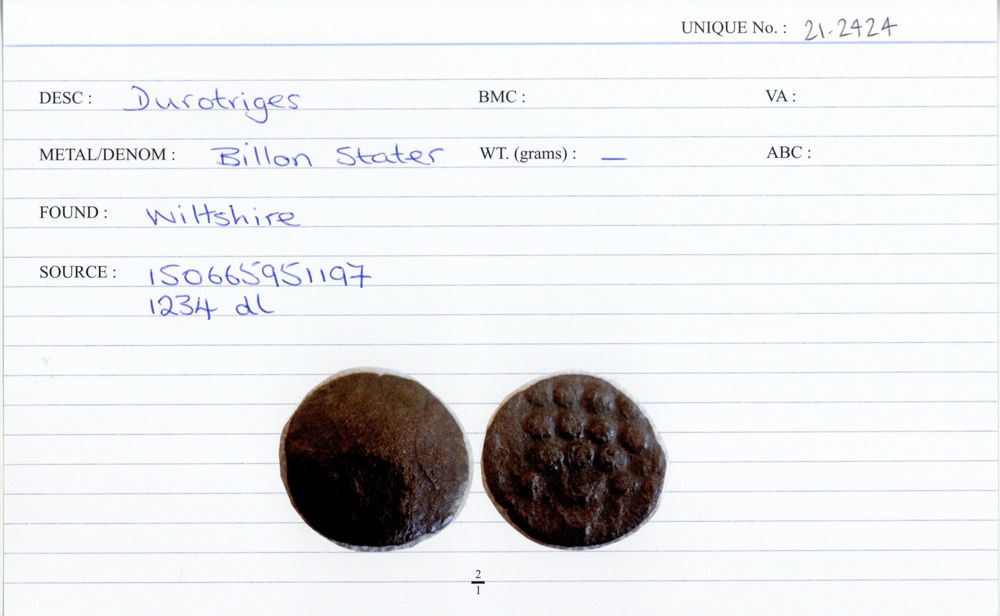 UNIQUE No. : 21.2424
DESC : Durotriges BMC : VA :
METAL/DENOM : Billon Stater WT. (grams) : — ABC :
FOUND : Wiltshire
SOURCE : 150665951197
1234 dl
2
1